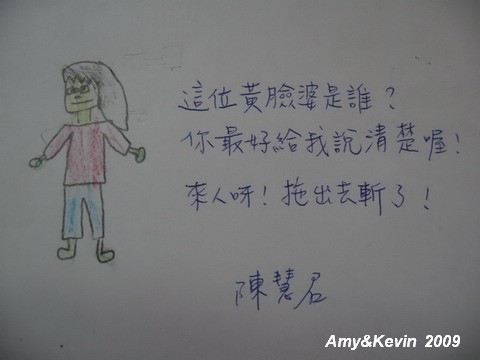 這位黃臉婆是誰？
你最好給我說清楚喔！
來人呀！拖出去斬了！
陳慧君
Amy&Kevin 2009